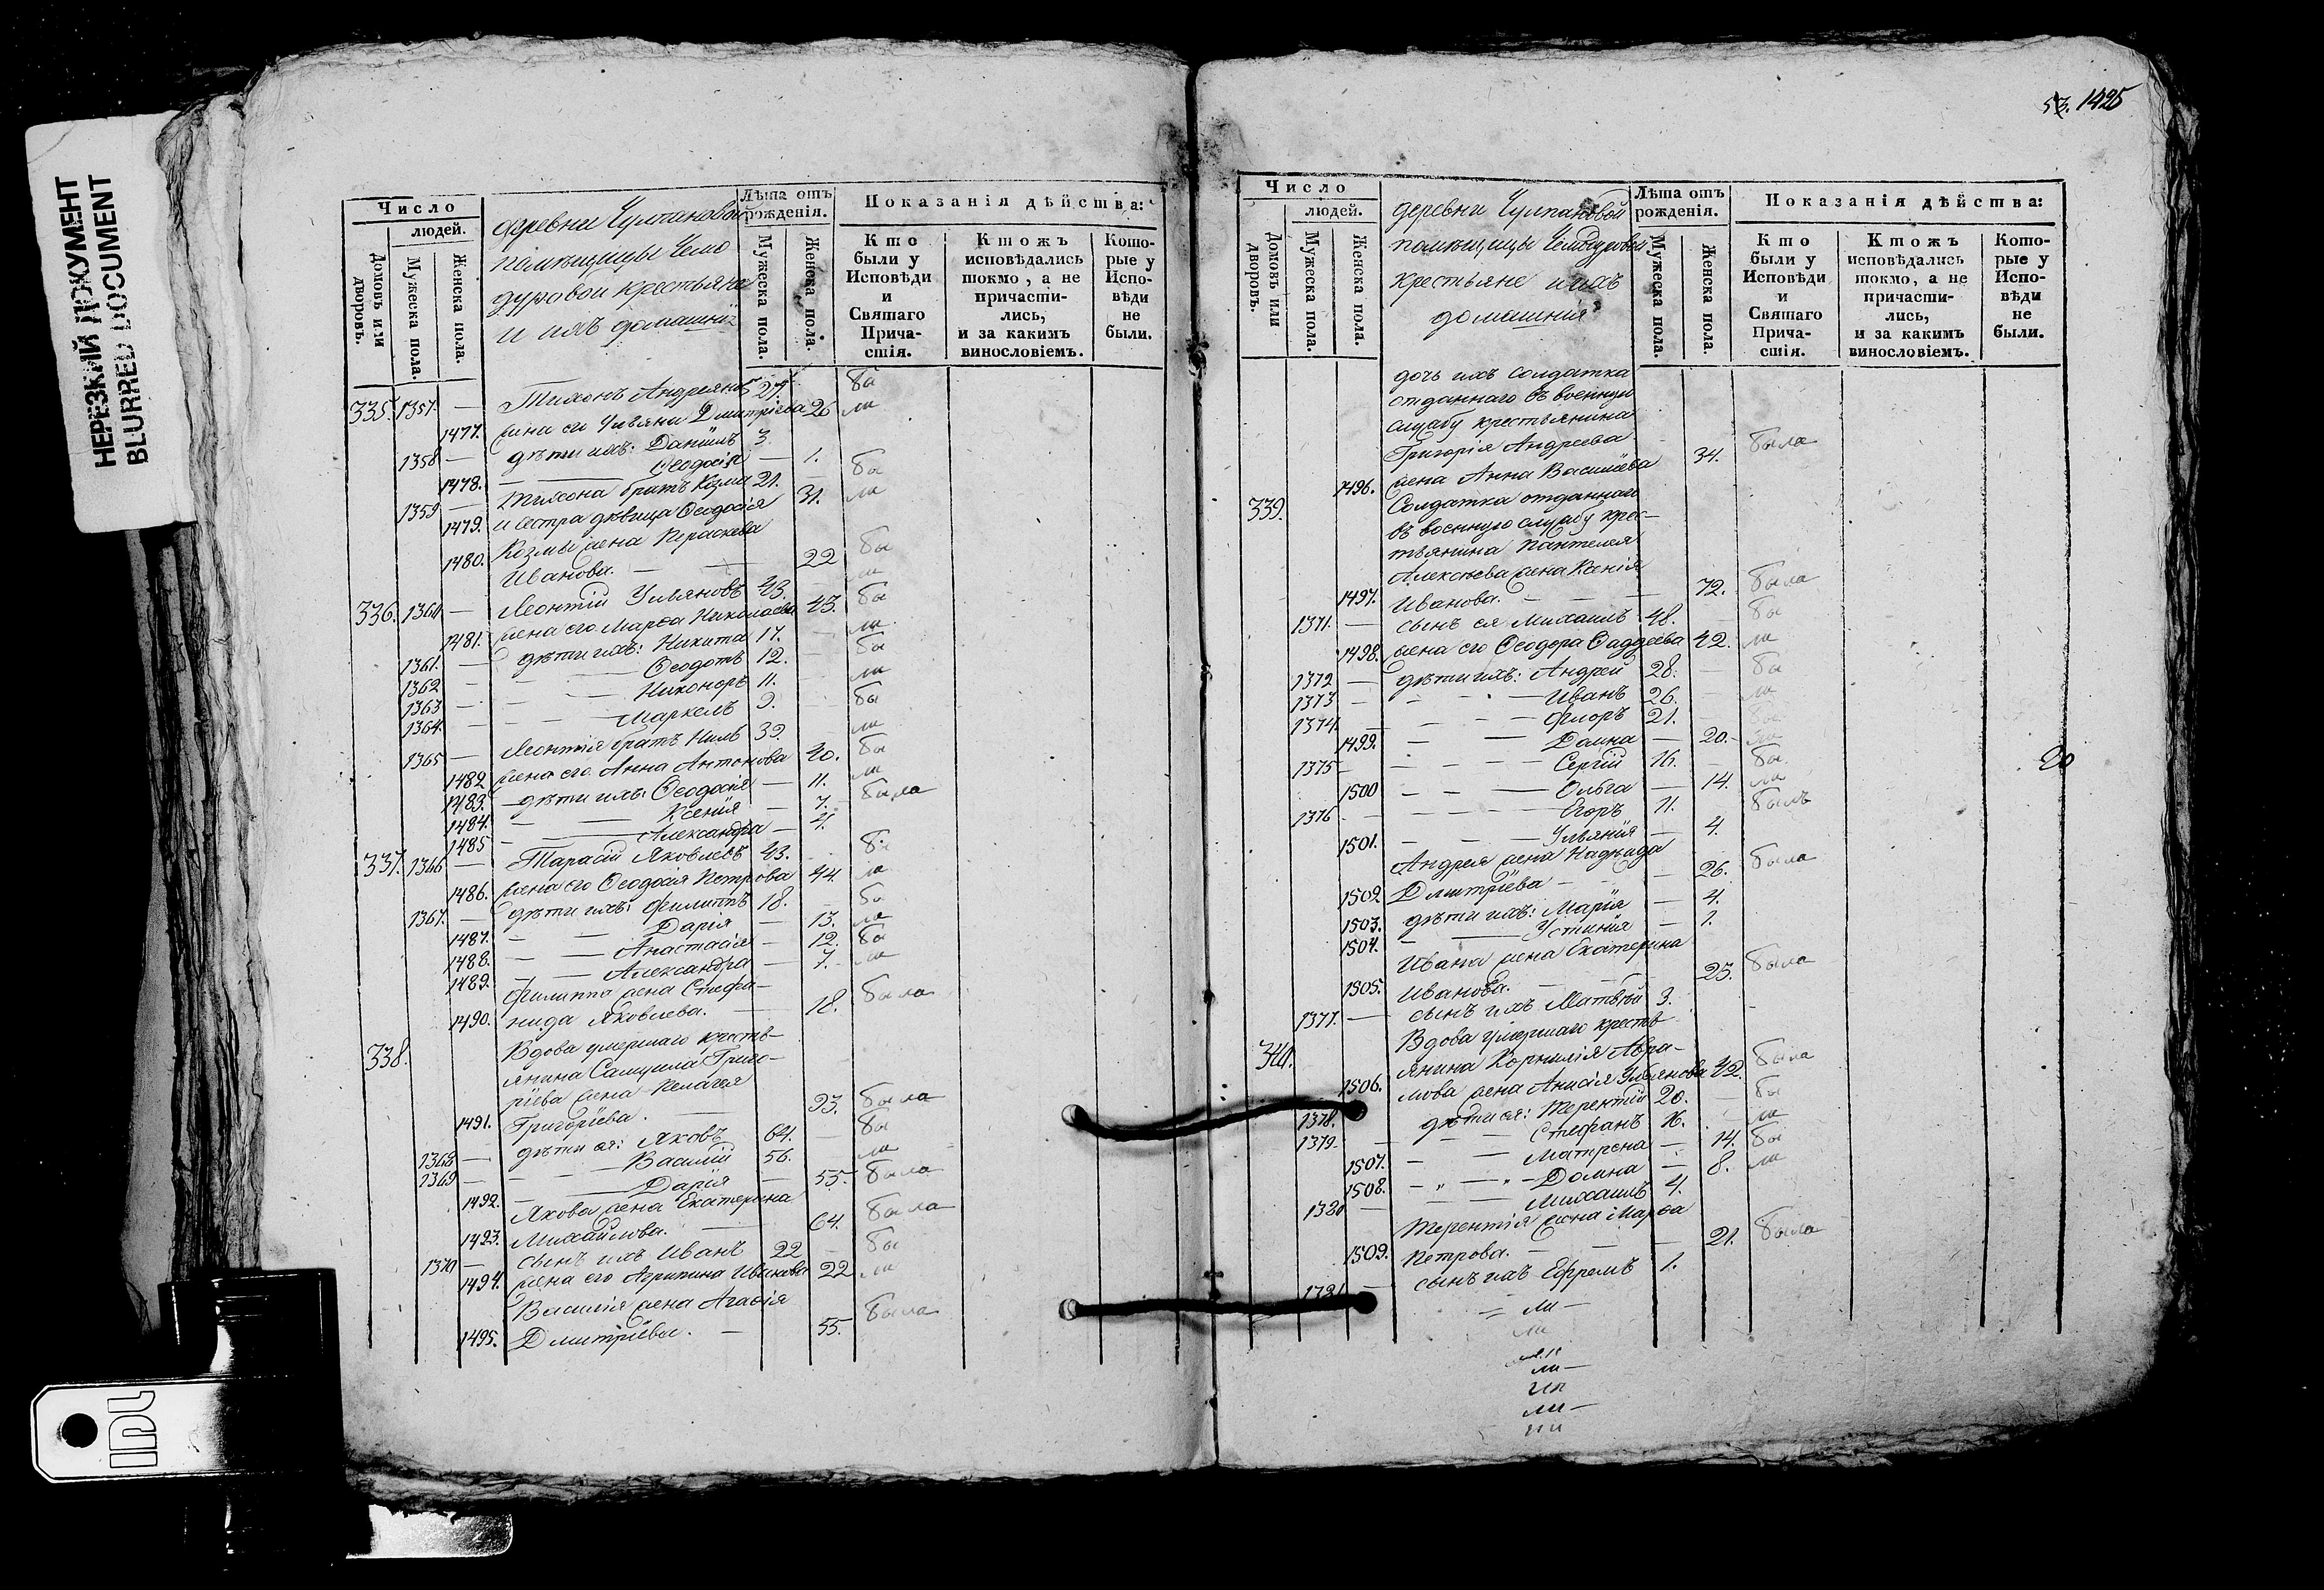 НЕРЕЗКИЙ ДОКУМЕНТ
BLURRED DOCUMENT
Число
людей.
Домовъ или дворовъ.
Мужеска пола.
Женска пола.
деревни Чулпановой
помѣщицы Чемо
дуровой крестьяне
и ихъ домашнія
Лѣта отъ рожденія.
Мужеска пола.
Женска пола.
Показанія дѣйства:
Кто были у Исповѣди и Святаго Причастія.
Ктожъ исповѣдались токмо, а не причастились, и за какимъ винословіемъ.
Которые у Исповѣди не были.
335. 1357. — Тихонъ Андреяновъ 27. бы
1477. жена его Ульяна Дмитріева 26 ли
1358 — дѣти ихъ: Даніилъ 3.
1478. — Ѳеодосія — 1.
1359 — Тихона братъ Козма 21. бы
1479. и сестра дѣвица Ѳеодосія 31. ли
1480. Козмы жена Пераскева
Иванова. — 22 бы
336. 1360 — Леонтій Ульяновъ 43. бы
1481. жена его Марѳа Николаева 43. ли
1361. — дѣти ихъ: Никита 17. бы
1362 — Ѳеодотъ 12. ли
1363 — Никоноръ 11. бы
1364. — Маркелъ 9. ли
1365 — Леонтія братъ Нилъ 39. бы
1482 жена его Анна Антонова 40. ли
1483. — дѣти ихъ: Ѳеодосія — 11. была
1484. — Ксенія — 7.
1485 — Александра — 4.
337. 1366 — Тарасій Яковлевъ 43. бы
1486. жена его Ѳеодосія Петрова 44. ли
1367. — дѣти ихъ: Филиппъ 18. бы
1487. — Дарія — 13. ли
1488. — Анастасія — 12. бы
1489. — Александра — 7. ли
Филиппа жена Стефа-
1490. нида Яковлева. — 18. была
338. Вдова умершаго кресть-
янина Самуила Григо-
рiева жена Пелагея
1491. Григоріева. — 93. была
1368 — дѣти ея: Яковъ 64. — бы
1369 — Василій 56. ли
1492. — Дарія — 55. была
Якова жена Екатерина
1493. Михайлова. — 64. была
1370 — сынъ ихъ Иванъ 22 — бы
1494. жена его Агрипина Иванова 22 ли
Василія жена Агаѳія
1495. Дмитріева. — 55. была
1425
Число
людей.
Домовъ или дворовъ.
Мужеска пола.
Женска пола.
деревни Чулпановой
помѣщицы Чемодуровой
крестьяне и ихъ
домашнія
Лѣта отъ рожденія.
Мужеска пола.
Женска пола.
Показанія дѣйства:
Кто были у Исповѣди и Святаго Причастія.
Ктожъ исповѣдались токмо, а не причастились, и за какимъ винословіемъ.
Которые у Исповѣди не были.
дочь ихъ солдатка
отданнаго въ военную
службу крестьянина
Григорія Андреева
1496. жена Анна Васильева 34. была
339. Солдатка отданнаго
въ военную службу крес-
тьянина Пантелея
Алексѣева жена Ксенія
1497. Иванова. — 72. была
1371. — сынъ ея Михаилъ 48. бы
1498. жена его Ѳеодора Ѳаддеева 42. ли
1372 — дѣти ихъ: Андрей 28. — бы
1373 — Иванъ 26. — ли
1374. — Флоръ 21.
1499. — Домна — 20.
1375 — Сергій 16. — бы
1500 — Ольга — 14. ли
1376 — Егоръ 11. былъ
1501. — Ульянія — 4.
Андрея жена Надежда
1502 Дмитріева — 26. была
1503. дѣти ихъ: Марія — 4.
1504. — Устинія — 1.
Ивана жена Екатерина
1505. Иванова. — 25. была
1377. — сынъ ихъ Матвѣй 3.
340. Вдова умершаго кресть-
янина Корнилія Абра-
1506. мова жена Анисія Ульянова 42. была
1378. дѣти ея: Терентій 20. — бы
1379 — Стефанъ 16. ли
1507. — Матрена — 14. бы
1508. — Домна — 8. ли
1380 — Михаилъ 4.
Терентія жена Марѳа
1509. Петрова. — 21. была
1381 — сынъ ихъ Ефремъ 1.
ли
ли
ли
ли